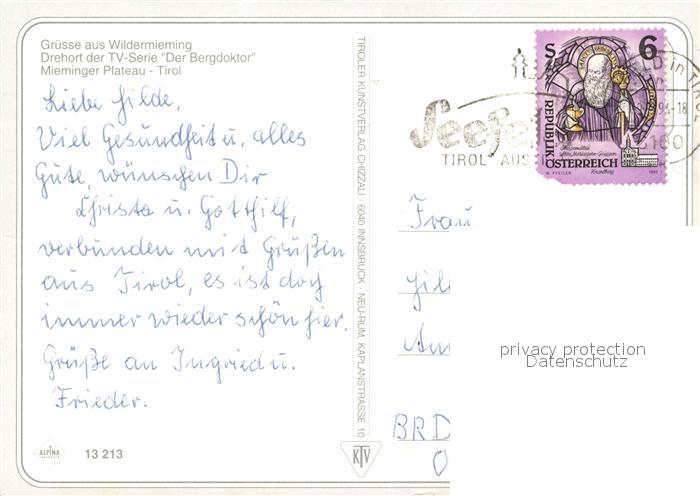 Grüsse aus Wildermieming
Drehort der TV-Serie "Der Bergdoktor"
Mieminger Plateau - Tirol
Liebe Hilde,
Viel Gesundheit u. alles
Gute, wünschen Dir
Christa u. Gotthilf,
verbunden mit Grüßen
aus Tirol, es ist doch
immer wieder schön hier.
Grüße an Ingried u.
Frieder.
ALPINA
13 213
TIROLER KUNSTVERLAG CHIZZALI · 6040 INNSBRUCK · NEU-RUM, KAPLANSTRASSE 10
KTV
Seefe
TIROL AUS
S 6
REPUBLIK
ÖSTERREICH
W. PFEILER
Frau
Hil
Am
BRD
privacy protection
Datenschutz